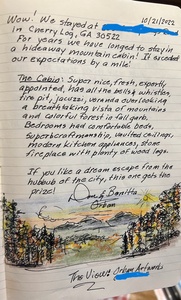 Wow! We stayed at
10/21/2022
in Cherry Log, GA 30522
For years we have longed to stay in
a hideaway mountain cabin! It exceeded
our expectations by a mile!
The Cabin: Super nice, fresh, expertly
appointed, has all the bells & whistles,
fire pit, jacuzzi, veranda overlooking
a breathtaking vista of mountains
and colorful forest in fall garb.
Bedrooms had comfortable beds,
superb craftmanship, vaulted ceilings,
modern kitchen appliances, stone
fireplace with plenty of wood logs.
If you like a dream escape from the
hubub of the city, this one gets the
prize!
The View: